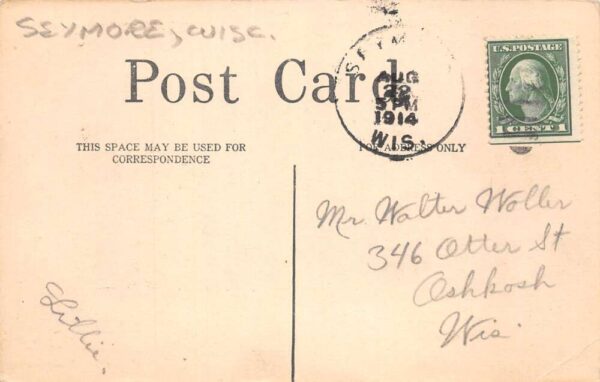 SEYMORE, WISC.
Post Card
SEYM
AUG
22
5 PM
1914
WIS.
U.S. POSTAGE
1 CENT 1
THIS SPACE MAY BE USED FOR
CORRESPONDENCE
FOR ADDRESS ONLY
Mr. Walter Woller
346 Otter St
Oshkosh
Wis.
Lillie.